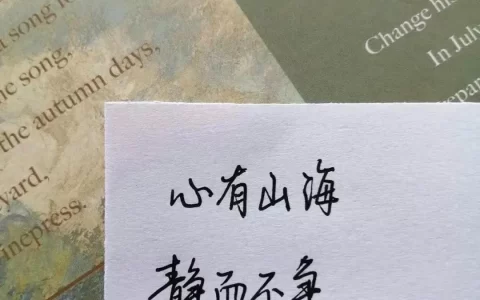 song
the song,
the autumn days,
yard,
Change his
In July
心有山海
静而不争